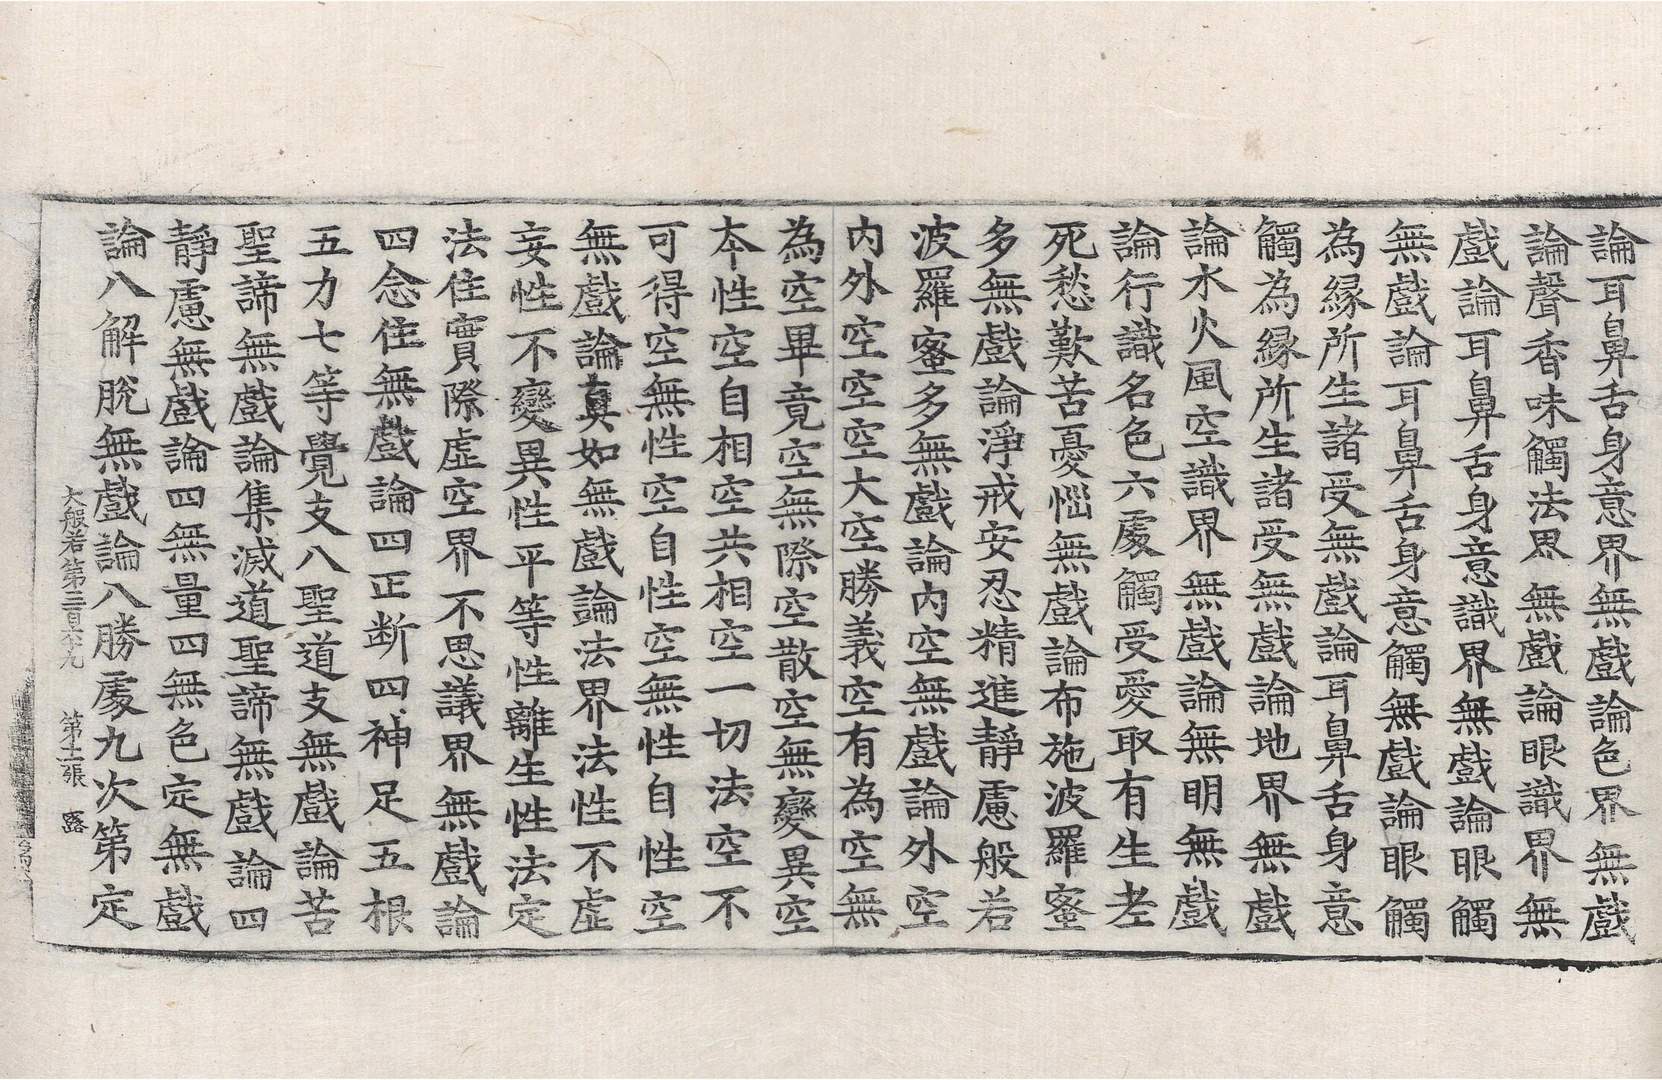 論耳鼻舌身意界無戲論色界無戲
論聲香味觸法界無戲論眼識界無
戲論耳鼻舌身意識界無戲論眼觸
無戲論耳鼻舌身意觸無戲論眼觸
為緣所生諸受無戲論耳鼻舌身意
觸為緣所生諸受無戲論地界無戲
論水火風空識界無戲論無明無戲
論行識名色六處觸受愛取有生老
死愁歎苦憂惱無戲論布施波羅蜜
多無戲論淨戒安忍精進靜慮般若
波羅蜜多無戲論內空無戲論外空
內外空空空大空勝義空有為空無
為空畢竟空無際空散空無變異空
本性空自相空共相空一切法空不
可得空無性空自性空無性自性空
無戲論真如無戲論法界法性不虛
妄性不變異性平等性離生性法定
法住實際虛空界不思議界無戲論
四念住無戲論四正断四神足五根
五力七等覺支八聖道支無戲論苦
聖諦無戲論集滅道聖諦無戲論四
靜慮無戲論四無量四無色定無戲
論八解脫無戲論八勝處九次第定
大般若第三百六十九 第十一張 露